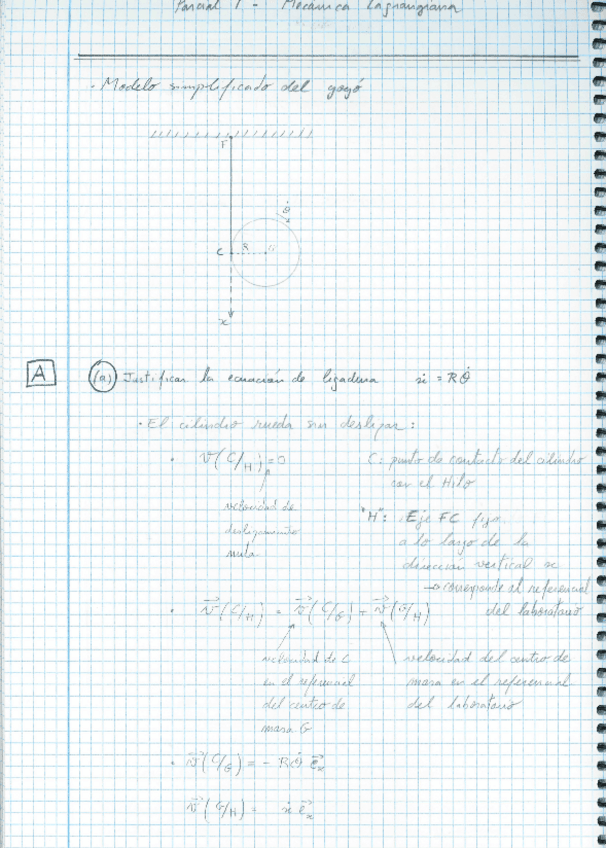 Parcial 1 - Mecánica Lagrangiana
· Modelo simplificado del yoyó
F
θ̇
C R G
x
A (a) Justificar la ecuación de ligadura ẋ = Rθ̇
· El cilindro rueda sin deslizar:
· v(C/H) = 0
velocidad de
deslizamiento
nula
C: punto de contacto del cilindro
con el Hilo
"H": Eje FC fijo
a lo largo de la
dirección vertical x
→ corresponde al referencial
del laboratorio
· v⃗(C/H) = v⃗(C/G) + v⃗(G/H)
velocidad de C
en el referencial
del centro de
masa G
velocidad del centro de
masa en el referencial
del laboratorio
· v⃗(C/G) = - Rθ̇ e⃗x
v⃗(G/H) = ẋ e⃗x